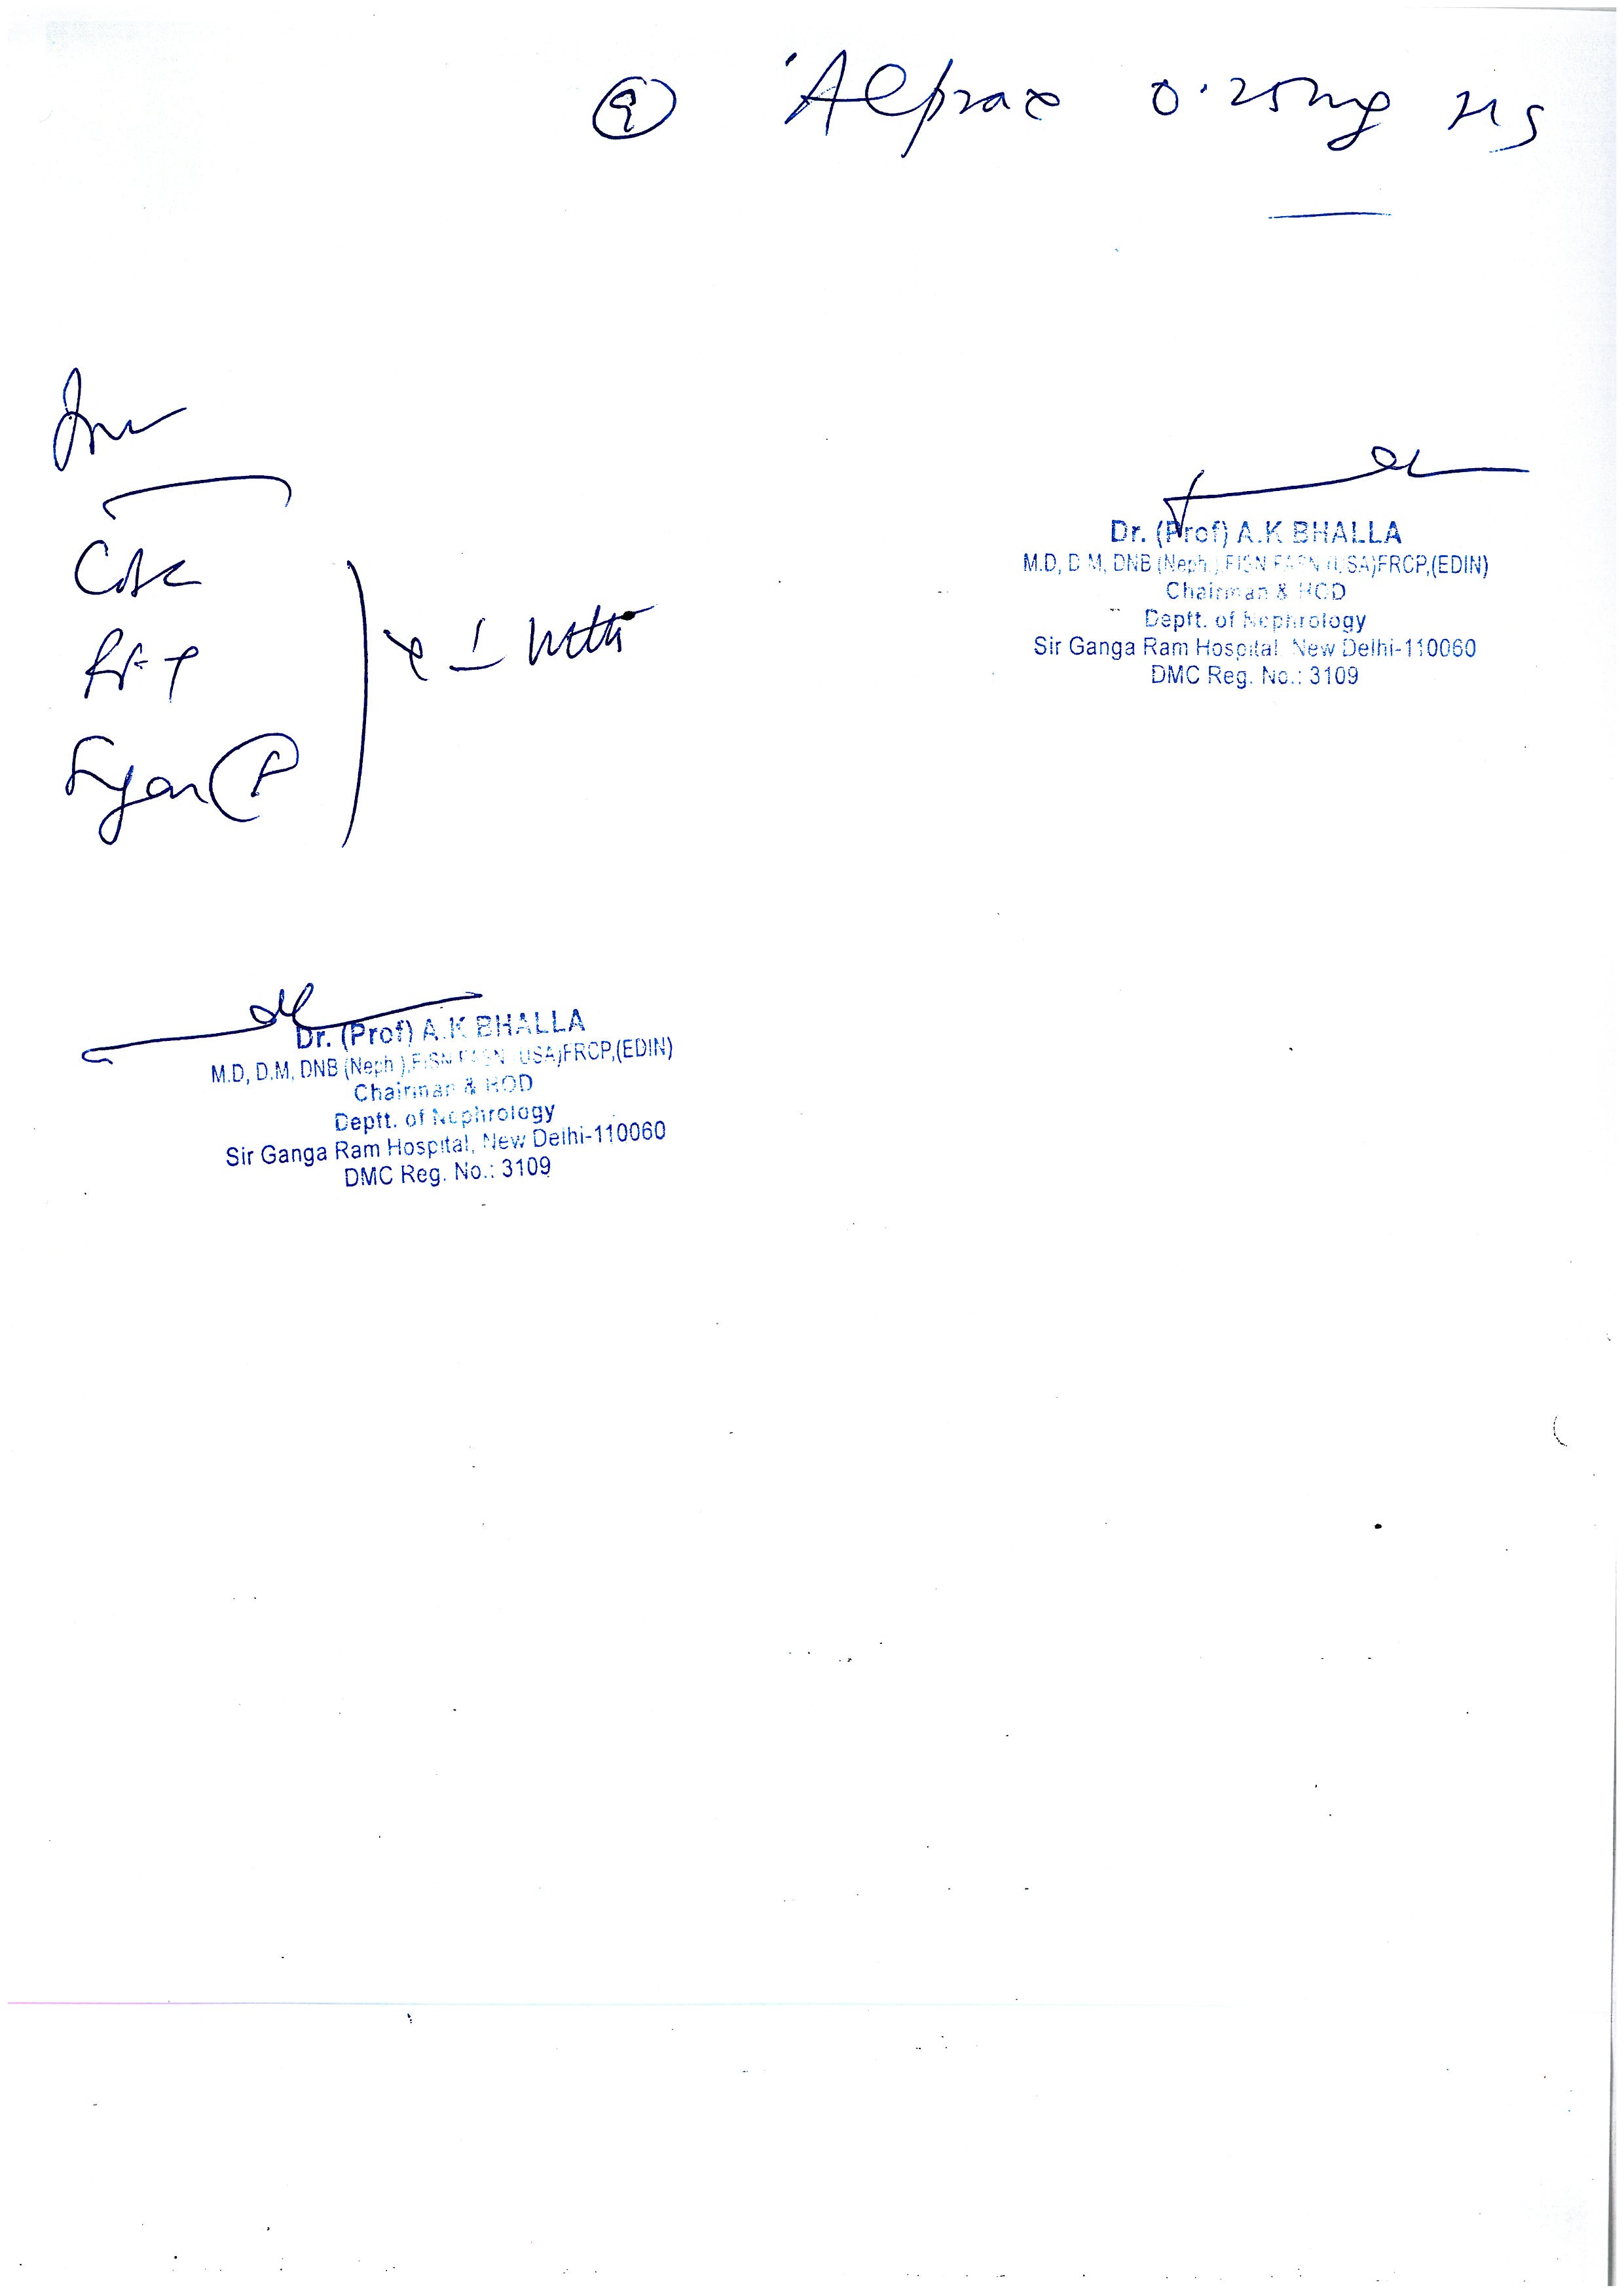 9 Alprax 0.25mg HS
Inv
CBC
RFT
Sugar (F)
Dr. (Prof) A.K BHALLA
M.D, D.M, DNB (Neph.),FISN FASN (USA)FRCP,(EDIN)
Chairman & HOD
Deptt. of Nephrology
Sir Ganga Ram Hospital, New Delhi-110060
DMC Reg. No.: 3109
Dr. (Prof) A.K BHALLA
M.D, D.M, DNB (Neph.),FISN FASN (USA)FRCP,(EDIN)
Chairman & HOD
Deptt. of Nephrology
Sir Ganga Ram Hospital, New Delhi-110060
DMC Reg. No.: 3109